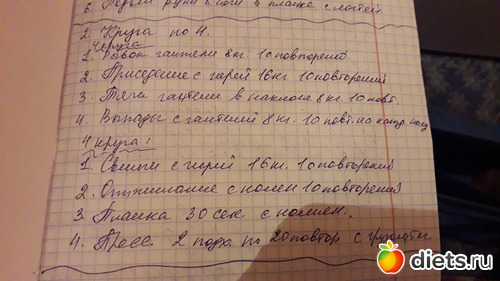 6. Подъём руки и ноги в планке с локтей.
2. Круга по 4.
4 круга
1. Рывок гантели 8 кг. 10 повторений
2. Приседание с гирей 16 кг 10 повторений
3. Тяга гантели в наклоне 8 кг. 10 повт.
4. Выпады с гантелей 8 кг. 10 повт. на кажд. ногу
4 круга:
1. Свинги с гирей 16 кг. 10 повторений
2. Отжимание с колен 10 повторений
3. Планка 30 сек. с колен.
4. Пресс 2 подх по 20 повтор с
diets.ru